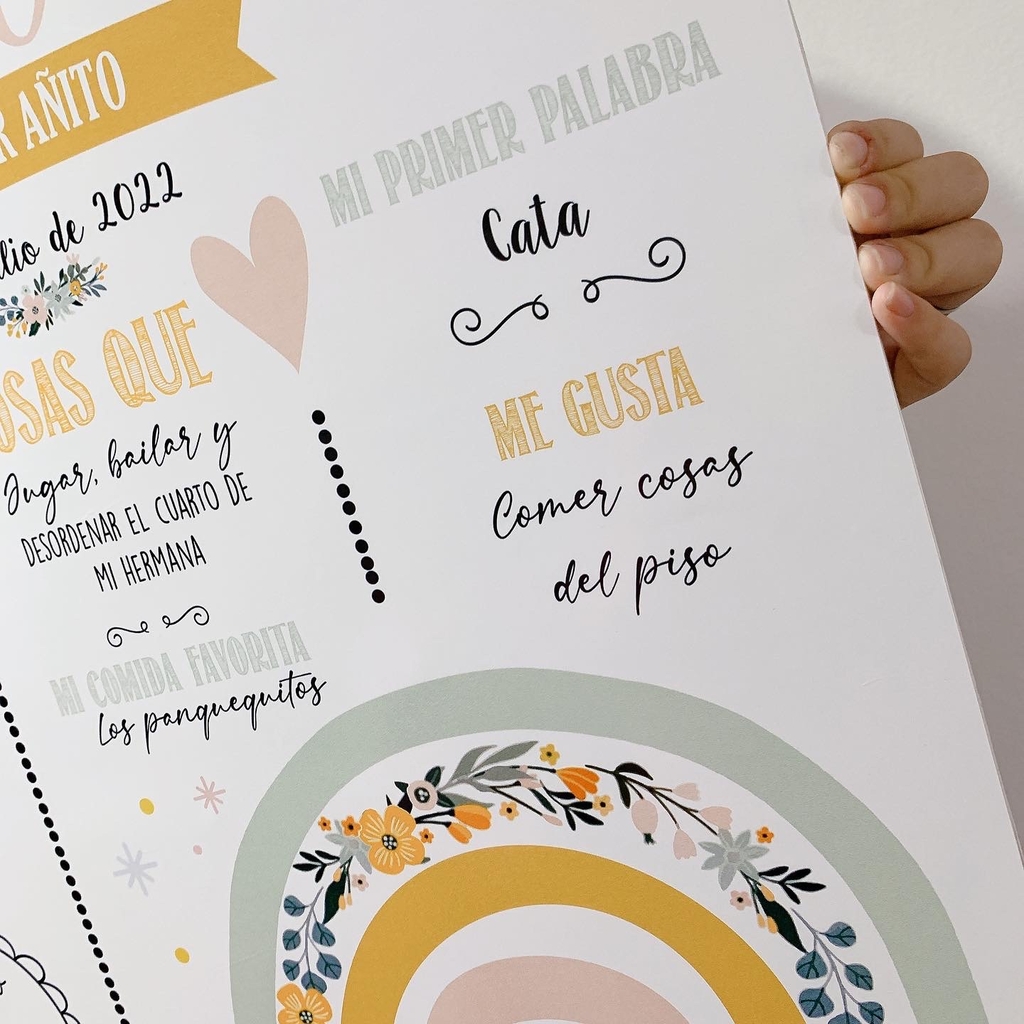 AÑITO
de 2022
QUE
Jugar, bailar y
DESORDENAR EL CUARTO DE
MI HERMANA
MI COMIDA FAVORITA
Los panquequitos
MI PRIMER PALABRA
Cata
ME GUSTA
Comer cosas
del piso